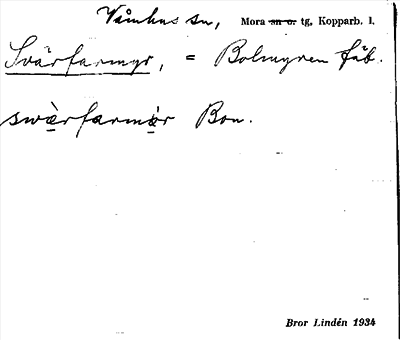 Våmhus sn, Mora sn o. tg, Kopparb. l.
Svärfarmyr, = Bolmyren fäb.
swèrfarmȧ̀r Bon.
Bror Lindén 1934